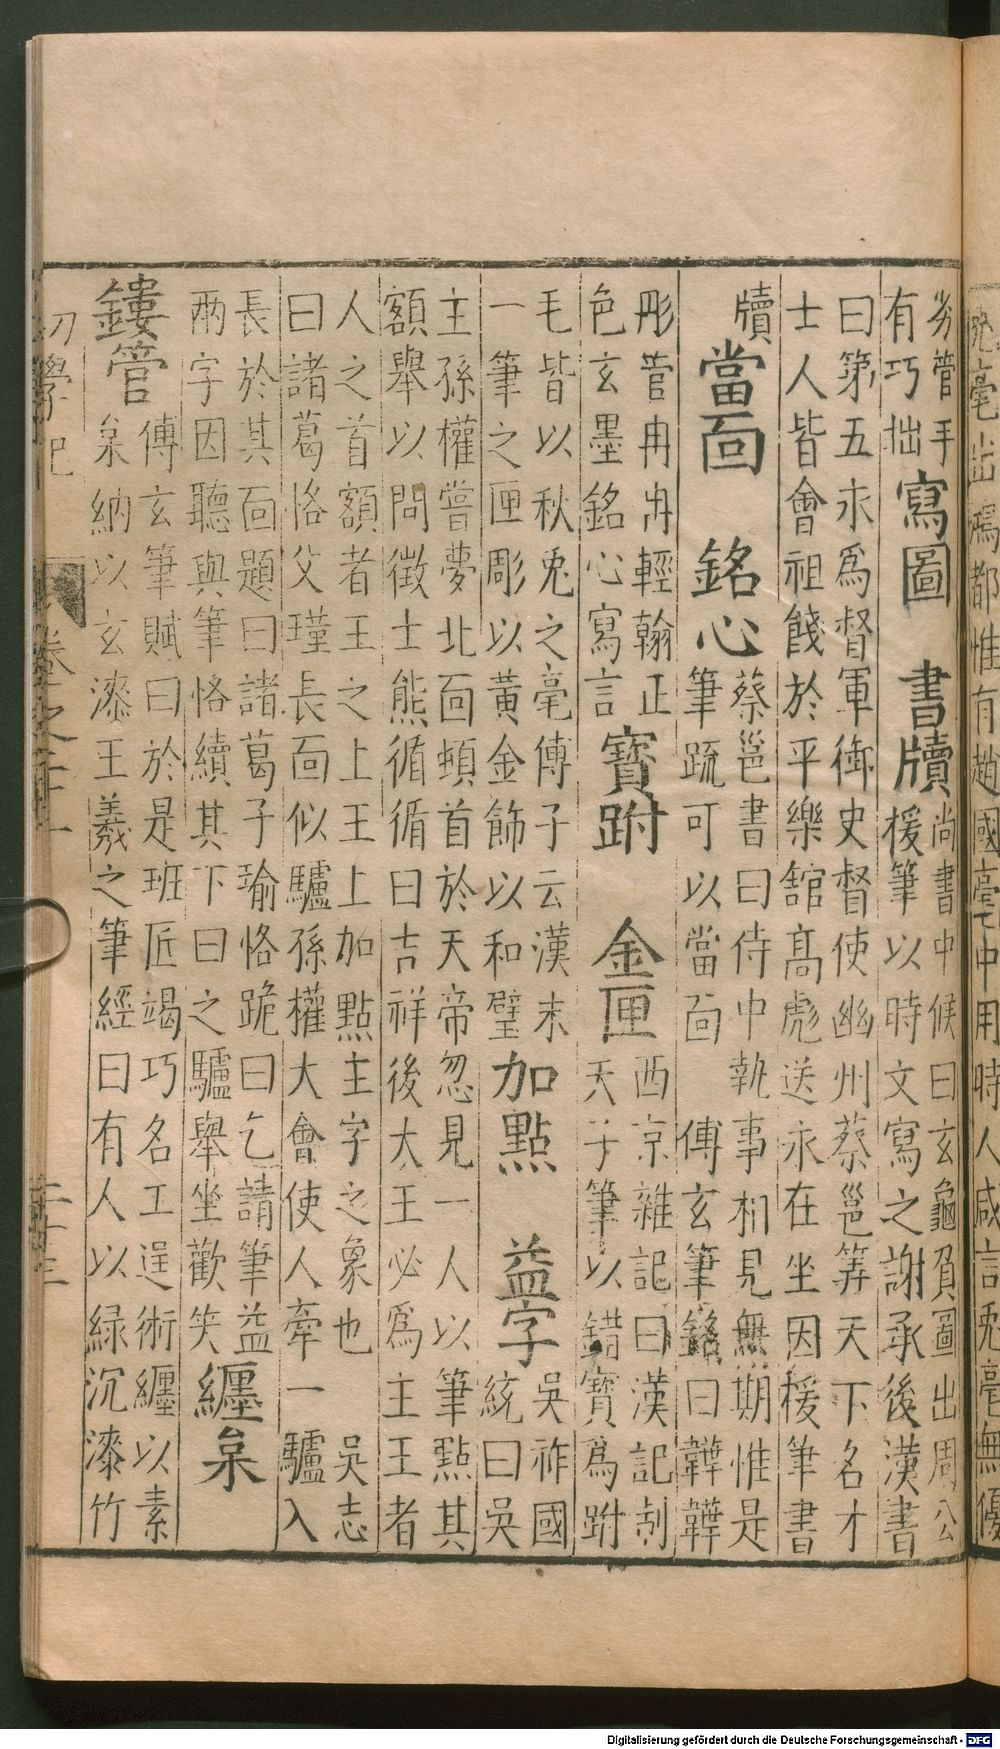 兔毫出鴻都惟有趙國毫中用時人咸言兔毫無優
劣管手
有巧拙
寫圖 書牘
尚書中候曰玄龜負圖出周公
援筆以時文寫之謝承後漢書
曰第五永爲督軍御史督使幽州蔡邕筭天下名才
士人皆會祖餞於平樂舘髙彪送永在坐因援筆書
牘
當面 銘心
蔡邕書曰侍中執事相見無期惟是
筆䟽可以當面 傅玄筆銘曰韡韡
彤管冉冉輕翰正
色玄墨銘心寫言
寳跗 金匣
西京雜記曰漢記制
天子筆以錯寳爲跗
毛皆以秋兎之毫傅子云漢末
一筆之匣彫以黃金飾以和璧
加點 益字
吳祚國
統曰吳
主孫權嘗夢北面頓首於天帝忽見一人以筆點其
額舉以問徴士熊循循曰吉祥後大王必爲主王者
人之首額者王之上王上加點主字之象也 吳志
曰諸葛恪父瑾長面似驢孫權大會使人牽一驢入
長於其面題曰諸葛子瑜恪跪曰乞請筆益
兩字因聽與筆恪續其下曰之驢舉坐歡笑
纒枲
鏤管
傅玄筆賦曰於是班匠竭巧名工逞術纒以素
枲納以玄漆王羲之筆經曰有人以緑沉漆竹
初學記 卷之二十一 二十三
Digitalisierung gefördert durch die Deutsche Forschungsgemeinschaft - DFG